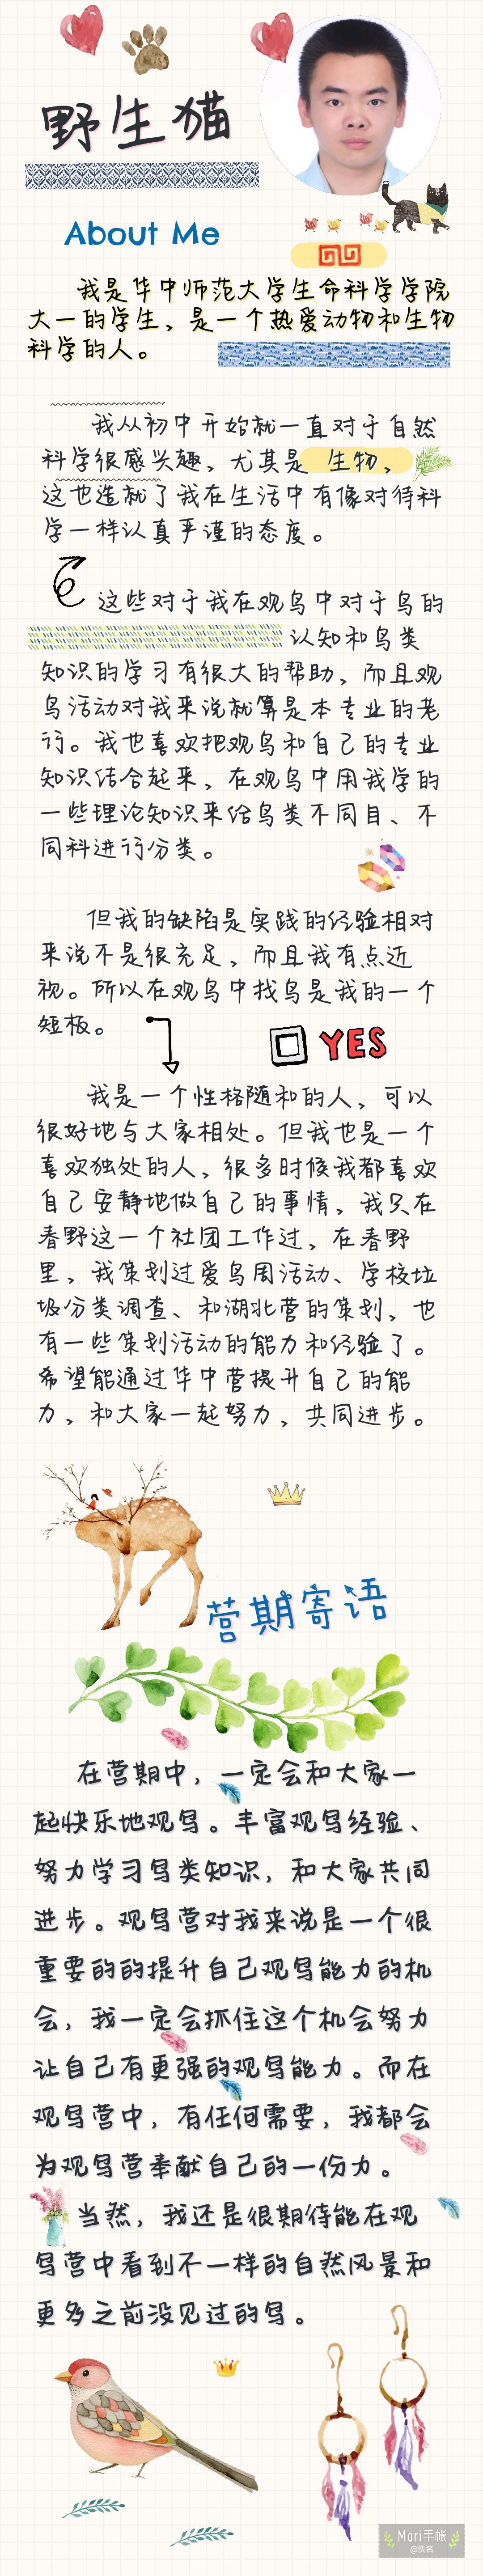 野生猫
About Me
我是华中师范大学生命科学学院
大一的学生，是一个热爱动物和生物
科学的人。
我从初中开始就一直对于自然
科学很感兴趣，尤其是 生物，
这也造就了我在生活中有像对待科
学一样认真严谨的态度。
这些对于我在观鸟中对于鸟的
认知和鸟类
知识的学习有很大的帮助，而且观
鸟活动对我来说就算是本专业的老
行。我也喜欢把观鸟和自己的专业
知识结合起来，在观鸟中用我学的
一些理论知识来给鸟类不同目、不
同科进行分类。
但我的缺陷是实践的经验相对
来说不是很充足，而且我有点近
视。所以在观鸟中找鸟是我的一个
短板。
YES
我是一个性格随和的人，可以
很好地与大家相处。但我也是一个
喜欢独处的人，很多时候我都喜欢
自己安静地做自己的事情，我只在
春野这一个社团工作过，在春野
里，我策划过爱鸟周活动、学校垃
圾分类调查、和湖北营的策划，也
有一些策划活动的能力和经验了。
希望能通过华中营提升自己的能
力，和大家一起努力，共同进步。
营期寄语
在营期中，一定会和大家一
起快乐地观鸟。丰富观鸟经验、
努力学习鸟类知识，和大家共同
进步。观鸟营对我来说是一个很
重要的的提升自己观鸟能力的机
会，我一定会抓住这个机会努力
让自己有更强的观鸟能力。而在
观鸟营中，有任何需要，我都会
为观鸟营奉献自己的一份力。
当然，我还是很期待能在观
鸟营中看到不一样的自然风景和
更多之前没见过的鸟。
Mori手帐
@佚名